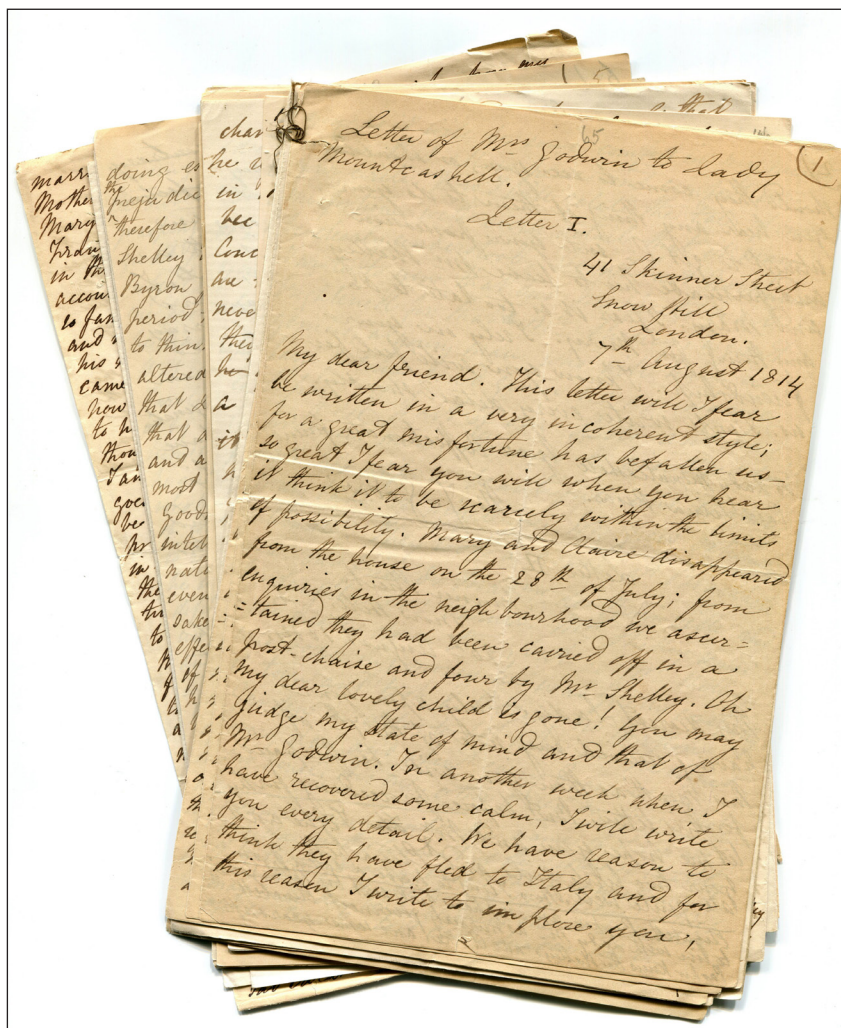 65
1
Letter of Mrs Godwin to Lady
Mountcashell.
Letter I.
41 Skinner Street
Snow Hill
London.
7th August 1814
My dear friend. This letter will I fear
be written in a very incoherent style;
for a great misfortune has befallen us—
so great I fear you will when you hear
it think it to be scarcely within the limits
of possibility. Mary and Claire disappeared
from the house on the 28th of July; from
enquiries in the neighbourhood we ascer=
=tained they had been carried off in a
post-chaise and four by Mr Shelley. Oh
my dear lovely child is gone! You may
judge my state of mind and that of
Mr Godwin. In another week when I
have recovered some calm, I will write
you every detail. We have reason to
think they have fled to Italy and for
this reason I write to implore you,
that
chai
he
in
bec
Conc
are
never
they
he
a
doing es
the prejudice
therefore
Shelley
Byron
period
to thin
altered
that d
that a
and a
most
good
inte
nati
even
sake
effe
of
marr
Mother
Mary
in th
accou
so fan
and
his
came
how
to h
thou
I an
goe
be
in
the
to